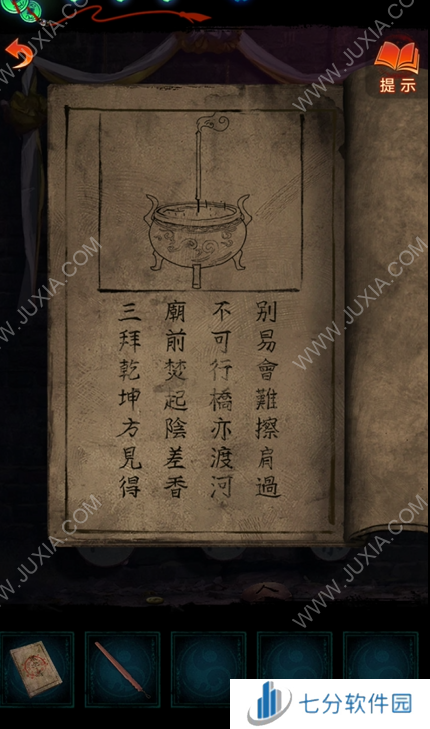 WWW.JUXIA.COM
提示
别易會難擦肩過
不可行橋亦渡河
廟前焚起陰差香
三拜乾坤方見得
WWW.JUXIA.COM
WWW.JUXIA.COM
WWW.JUXIA.COM
WWW.JUXIA.COM
七分软件园